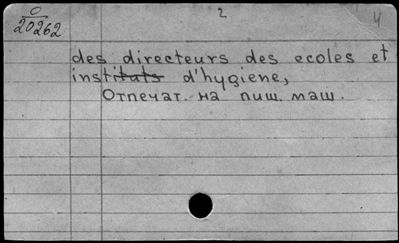 O
20262
2
4
des directeurs des ecoles et
instituts d'hygiene,
Отпечат. на пиш. маш.